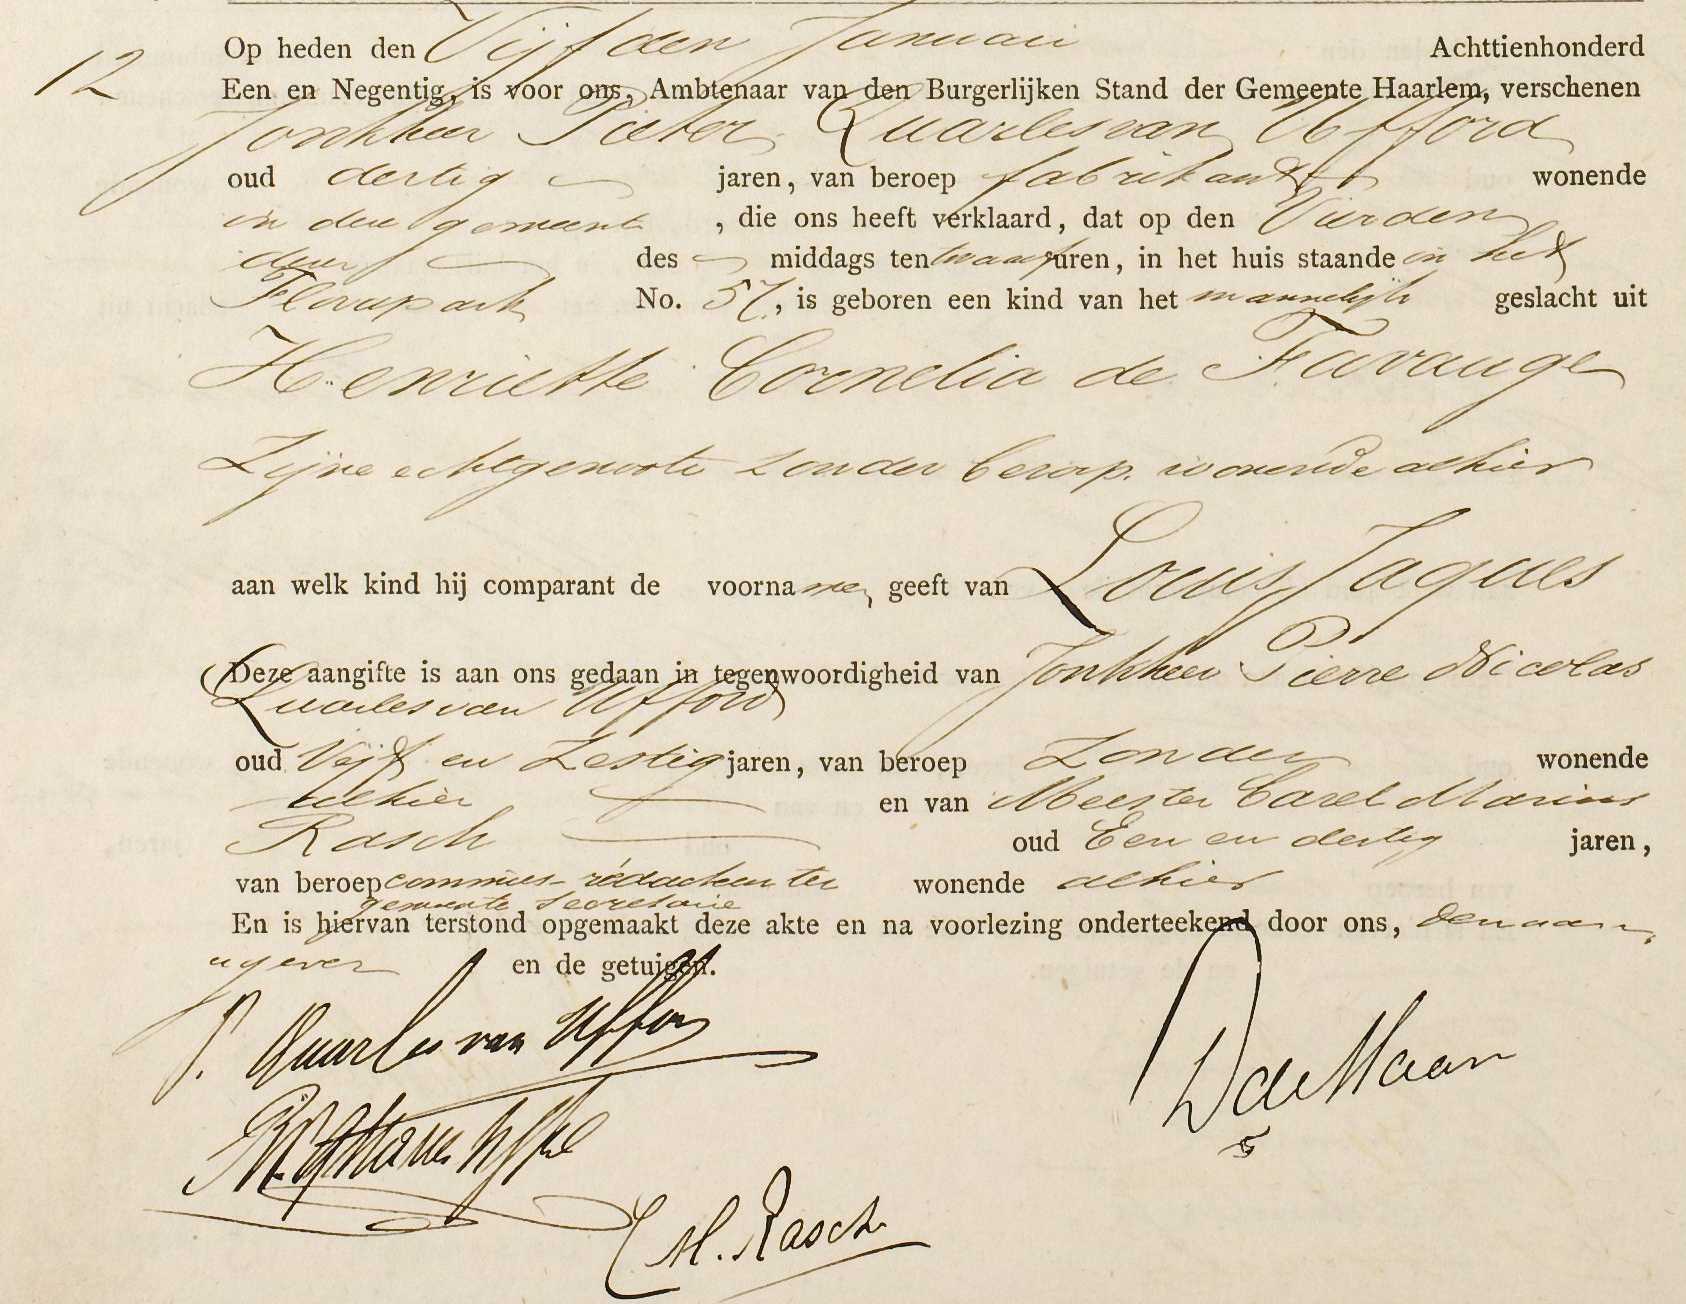 12
Op heden den Vijfden Januari Achttienhonderd
Een en Negentig, is voor ons, Ambtenaar van den Burgerlijken Stand der Gemeente Haarlem, verschenen
Jonkheer Pieter Quarles van Ufford
oud dertig jaren, van beroep fabrikant wonende
in deze gemeente, die ons heeft verklaard, dat op den Vierden
dezer des middags ten twaalf uren, in het huis staande in het
Florapark No. 57, is geboren een kind van het mannelijk geslacht uit
Henriette Cornelia de Favauge
Zijne echtgenoote zonder beroep. wonende alhier
aan welk kind hij comparant de voornamen geeft van Louis Jaques
Deze aangifte is aan ons gedaan in tegenwoordigheid van Jonkheer Pierre Nicolas
Quarles van Ufford
oud Vijf en Zestig jaren, van beroep Zonder wonende
alhier en van Meester Carel Marius
Rasch oud Een en dertig jaren,
van beroep commies-rédacteur ter wonende alhier
gemeente secretarie
En is hiervan terstond opgemaakt deze akte en na voorlezing onderteekend door ons, den aan
ngever en de getuigen.
P. Quarles van Ufford
D de Haan
C M. Rasch